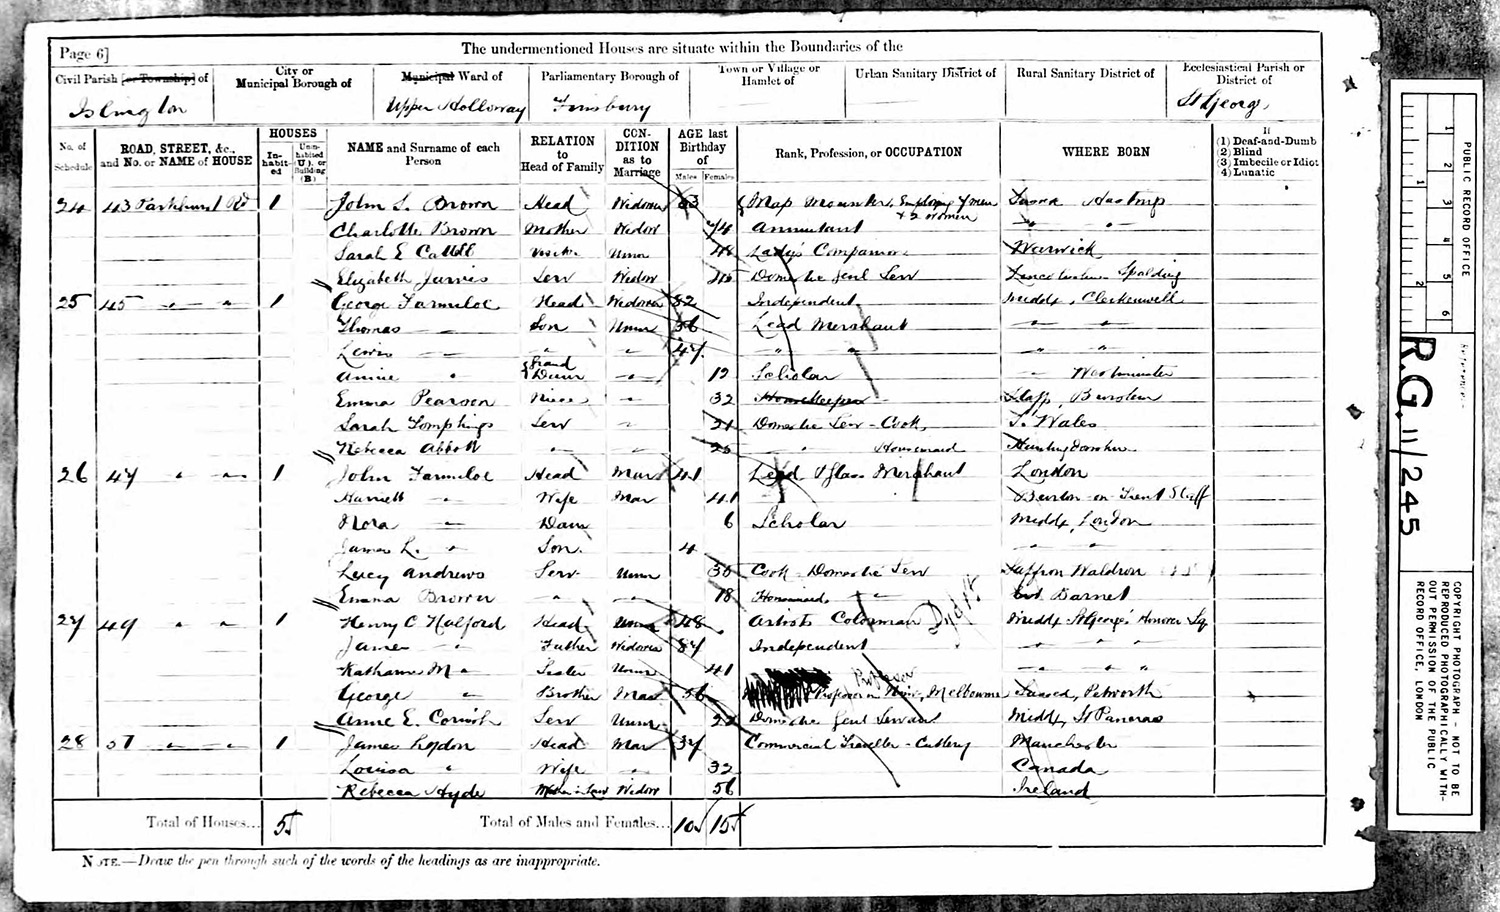 Page 6]
The undermentioned Houses are situate within the Boundaries of the
Civil Parish [or Township] of
City or Municipal Borough of
Municipal Ward of
Parliamentary Borough of
Town or Village or Hamlet of
Urban Sanitary District of
Rural Sanitary District of
Ecclesiastical Parish or District of
Islington Upper Holloway Finsbury St George
No. of Schedule
ROAD, STREET, &c., and No. or NAME of HOUSE
HOUSES
Inhabited
Uninhabited (U), or Building (B)
NAME and Surname of each Person
RELATION to Head of Family
CONDITION as to Marriage
AGE last Birthday of
Males Females
Rank, Profession, or OCCUPATION
WHERE BORN
If
(1) Deaf-and-Dumb
(2) Blind
(3) Imbecile or Idiot
(4) Lunatic
24 43 Parkhurst Rd 1 John S. Brown Head Widower 53 Map Mounter, Employing 7 men & 2 women Sussex Hastings
Charlotte Brown Mother Widow 74 Annuitant " "
Sarah E Visitor Unm Lady's Companion Warwick
Elizabeth Jarvis Serv Widow Domestic Genl Serv Spalding
25 45 " " 1 George Farmiloe Head Widower 82 Independent Middx, Clerkenwell
Thomas — Son Unm 56 Lead Merchant " "
Lewis — " " 47 " " " "
Annie " Grand Daur " 12 Scholar " Westminster
Emma Pearson Niece " 32 Housekeeper Staff,
Sarah Tompkings Serv " 21 Domestic Serv - Cook, S. Wales
Rebecca Abbott " " 25 " Housemaid
26 47 " " 1 John Farmiloe Head Mar 41 Lead & Glass Merchant London
Harriett " Wife Mar 41 Burton on Trent Staff
Nora — Daur 6 Scholar Middx, London
James L. " Son 4 " "
Lucy Andrews Serv Unm 30 Cook - Domestic Serv Saffron Waldron
Emma Brown " " 18 Housemaid, " " Barnet
27 49 " " 1 Henry C Halford Head Unm 48 Artists Colorman Middx St George's Hanover Sq
James — Father Widower 84 Independent " " "
Katharine M " Sister Unm 41 " " "
George " Brother Mar 56 Professor Univ, Melbourne Sussex, Petworth
Professor
Anne E. Cornish Serv Unm 22 Domestic Genl Servant Middx, St Pancras
28 51 " " 1 James Lydon Head Mar 37 Commercial Traveller - Cutlery Manchester
Louisa " Wife " 32 Canada
Rebecca Hyde Mother in law Widow 56 Ireland
Total of Houses... 5
Total of Males and Females... 10 15
NOTE.—Draw the pen through such of the words of the headings as are inappropriate.
PUBLIC RECORD OFFICE
1 2 3 4 5 6
1 2
Reference:-
R.G. 11/245
COPYRIGHT PHOTOGRAPH - NOT TO BE REPRODUCED PHOTOGRAPHICALLY WITHOUT PERMISSION OF THE PUBLIC RECORD OFFICE, LONDON